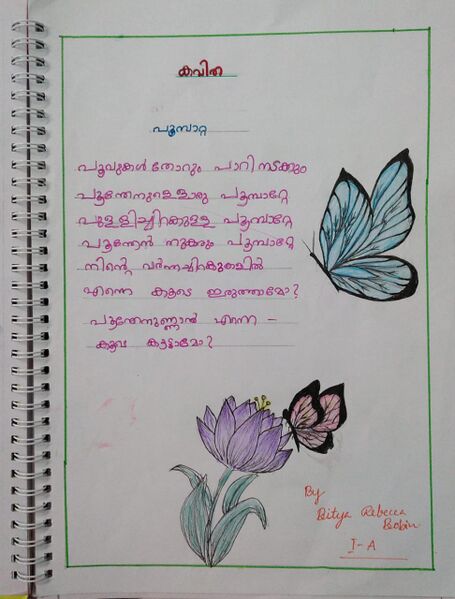 കവിത
പൂമ്പാറ്റ
പൂവുകൾതോറും പാറിനടക്കും
പൂന്തേനുള്ളൊരു പൂമ്പാറ്റേ
പുള്ളിച്ചിറകുള്ള പൂമ്പാറ്റേ
പൂന്തേൻ നുകരും പൂമ്പാറ്റേ
നിന്റെ വർണ്ണച്ചിറകുകളിൽ
എന്നെ കൂടെ ഇരുത്താമോ?
പൂന്തേനുണ്ണാൻ എന്നെ -
കൂടെ കൂട്ടാമോ?
By
Ritya Rebecca
Robin
I - A